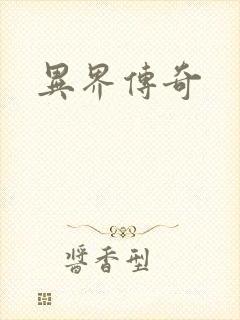 異界傳奇
醬香型